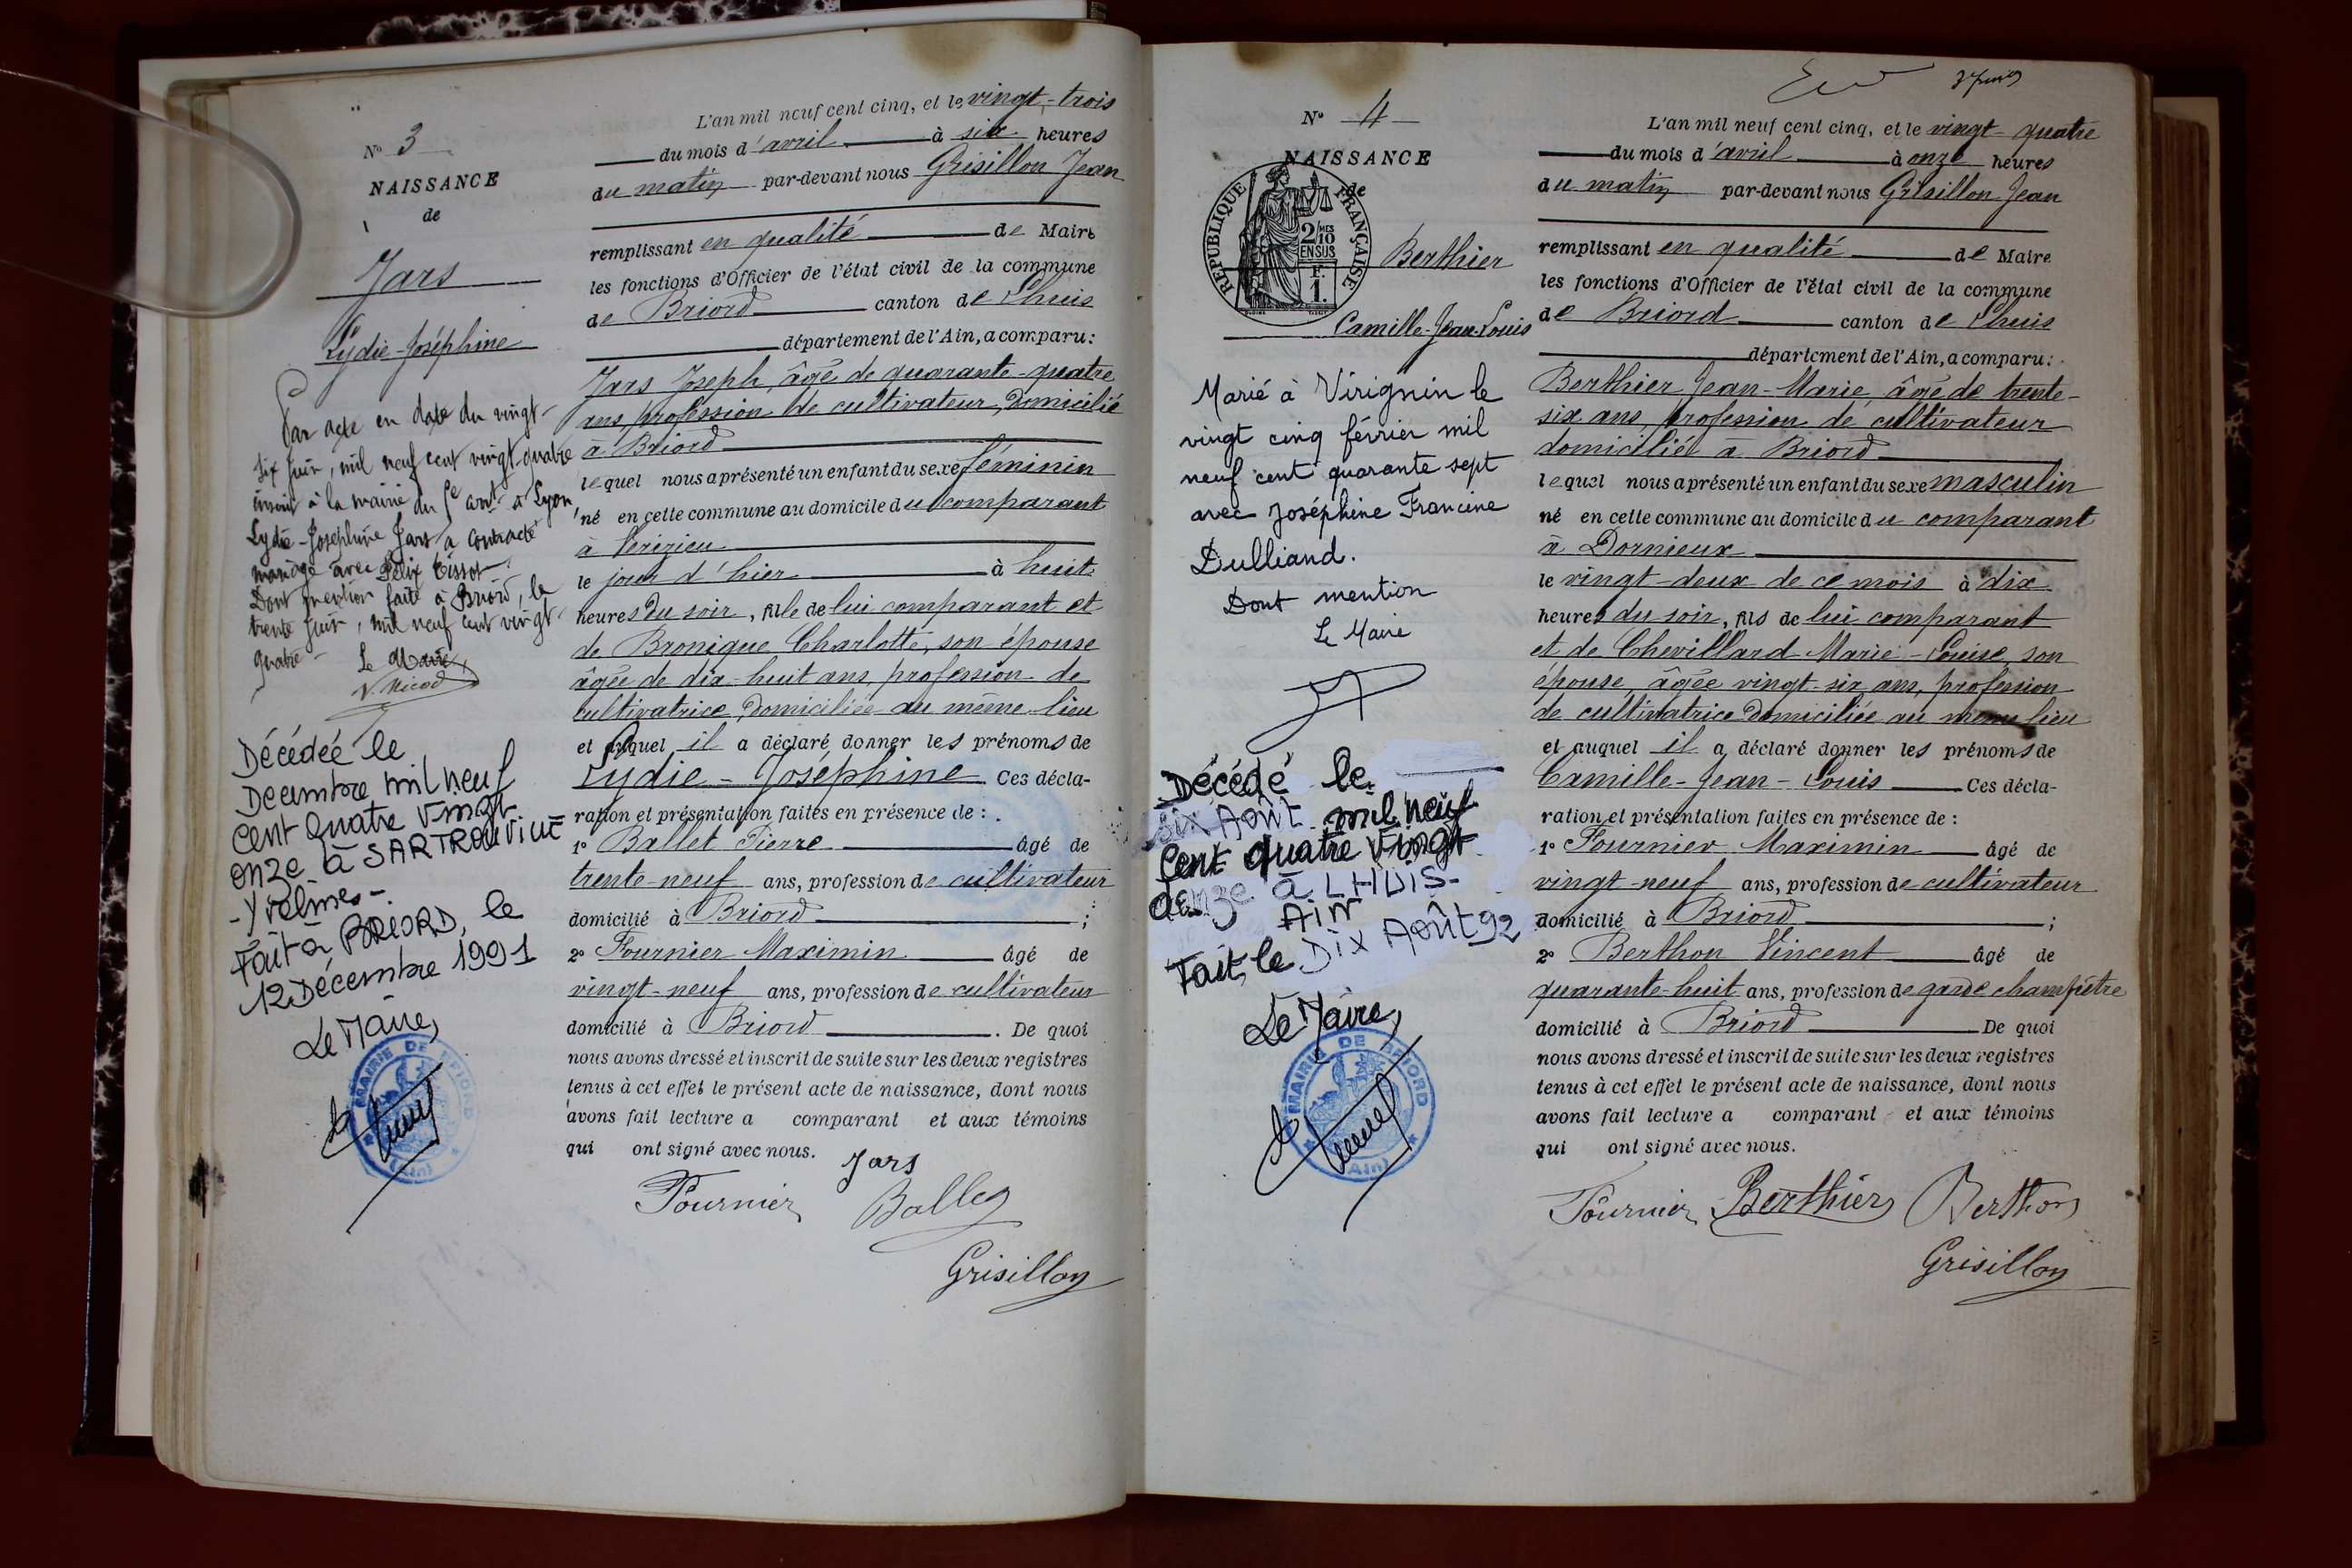 N° 3
NAISSANCE
de
Jars
Lydie-Joséphine
Par acte en date du vingt-
six juin, mil neuf cent vingt-quatre
inscrit à la mairie du 5e arrt à Lyon
Lydie-Joséphine Jars a contracté
mariage avec Félix Tissot.
Dont mention faite à Briord, le
trente juin, mil neuf cent vingt
quatre-
Le Maire,
V. Nicod
Décédeé le
Decembre mil neuf
Cent Quatre Vingt
onze à SARTROUVILLE
-Yvelines-
Fait à BRIORD, le
12 Décembre 1991
Le Maire,
MAIRIE DE BRIORD
(Ain)
L'an mil neuf cent cinq, et le vingt-trois
du mois d'avril à six heures
du matin par-devant nous Grisillon Jean
remplissant en qualité de Maire
les fonctions d'Officier de l'état civil de la commune
de Briord canton de Lhuis
département de l'Ain, a comparu:
Jars Joseph, âgé de quarante-quatre
ans, profession de cultivateur, domicilié
à Briord
lequel nous a présenté un enfant du sexe féminin
né en cette commune au domicile du comparant
à Vérizieu
le jour d'hier à huit
heures du soir, fille de lui comparant et
de Bronique Charlotte, son épouse
âgée de dix-huit ans, profession de
cultivatrice, domiciliée au même lieu
et auquel il a déclaré donner les prénoms de
Lydie-Joséphine Ces décla-
ration et présentation faites en présence de :
1° Ballet Pierre âgé de
trente-neuf ans, profession de cultivateur
domicilié à Briord ;
2° Fournier Maximin âgé de
vingt-neuf ans, profession de cultivateur
domicilié à Briord . De quoi
nous avons dressé et inscrit de suite sur les deux registres
tenus à cet effet le présent acte de naissance, dont nous
avons fait lecture a comparant et aux témoins
qui ont signé avec nous.
Jars
Fournier Ballet
Grisillon
N° 4
NAISSANCE
de
RÉPUBLIQUE FRANÇAISE
2/10 MES
EN SUS
F.
1.
Berthier
Camille-Jean-Louis
Marié à Virignin le
vingt cinq février mil
neuf cent quarante sept
avec Joséphine Francine
Dulliand.
Dont mention
Le Maire
Décédé le
six Août mil neuf
Cent quatre Vingt
douze à LHUIS-
AIN
Fait, le Dix Août 92
Le Maire,
MAIRIE DE BRIORD
(Ain)
L'an mil neuf cent cinq, et le vingt-quatre
du mois d'avril à onze heures
du matin par-devant nous Grisillon Jean
remplissant en qualité de Maire
les fonctions d'Officier de l'état civil de la commune
de Briord canton de Lhuis
département de l'Ain, a comparu:
Berthier Jean-Marie, âgé de trente-
six ans, profession de cultivateur
domicilié à Briord
lequel nous a présenté un enfant du sexe masculin
né en cette commune au domicile du comparant
à Dornieux
le vingt-deux de ce mois à dix
heures du soir, fils de lui comparant
et de Chevillard Marie-Louise, son
épouse, âgée vingt-six ans, profession
de cultivatrice domiciliée au même lieu
et auquel il a déclaré donner les prénoms de
Camille-Jean-Louis Ces décla-
ration et présentation faites en présence de :
1° Fournier Maximin âgé de
vingt-neuf ans, profession de cultivateur
domicilié à Briord ;
2° Berthon Vincent âgé de
quarante-huit ans, profession de garde champêtre
domicilié à Briord De quoi
nous avons dressé et inscrit de suite sur les deux registres
tenus à cet effet le présent acte de naissance, dont nous
avons fait lecture a comparant et aux témoins
qui ont signé avec nous.
Fournier Berthier Berthon
Grisillon